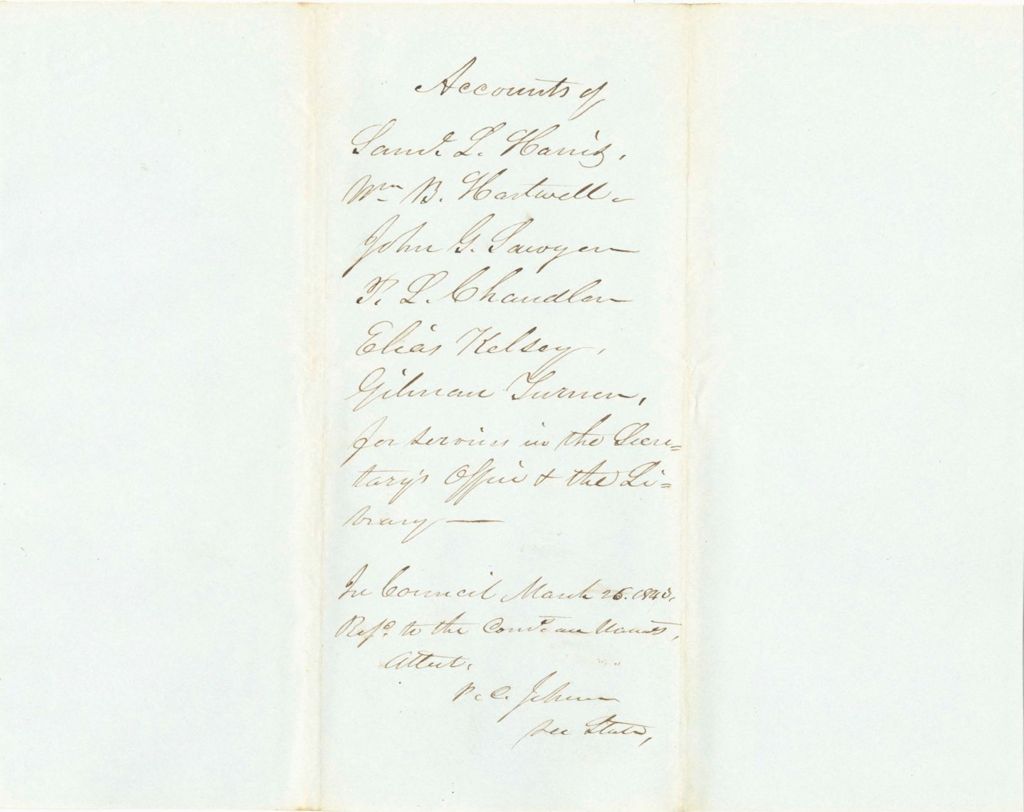 Accounts of
Saml. L. Harris,
Wm B. Hartwell
John G. Sawyer
P. L. Chandler
Elias Kelsey,
Gilman Turner,
for services in the Secre=
tary's Office & the Li=
brary —
In Council March 26. 1843.
Refd. to the Come. on Warrants,
Attest,
P. C. Johnson
Sec State,